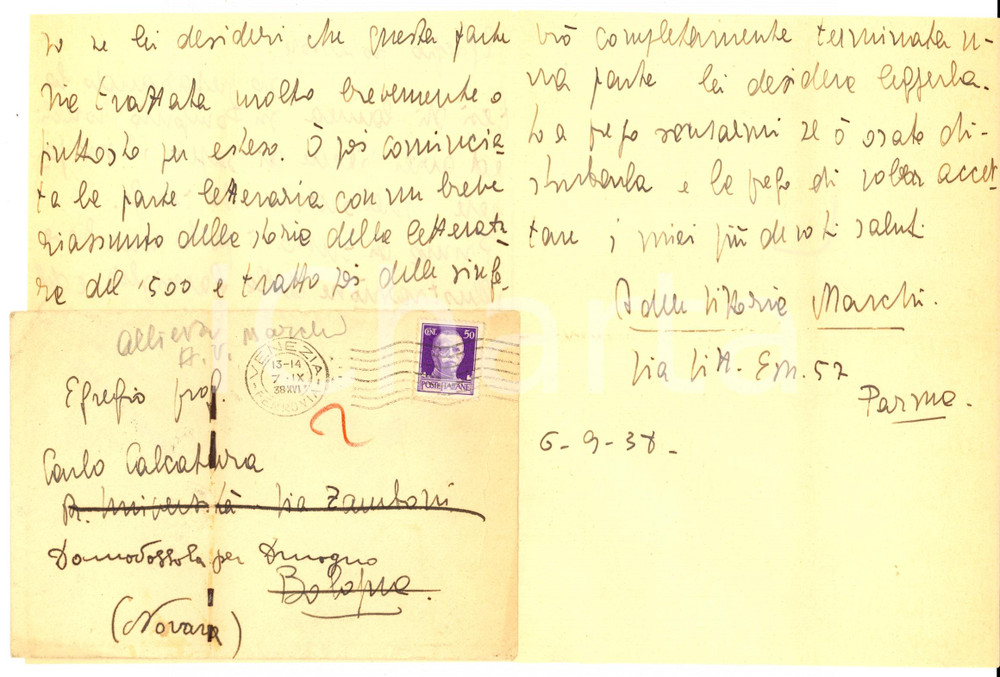 se lei desideri che questa parte
sia trattata molto brevemente o
piuttosto per esteso. Ò poi comincia-
ta la parte letteraria con un breve
riassunto della storia della letteratu-
ra del '500 e tratto poi delle
vrò completamente terminata u-
na parte lei desidera leggerla.
La prego scusarmi se ò osato di-
sturbarla e la prego di voler accet-
tare i miei più devoti saluti
Adelia Vittoria Marchi.
Via Vitt. Em. 57
Parma.
6-9-38-
Allieva Marchi
A. V.
VENEZIA
13-14
7 IX
38 XVI
FERROVIA
CENT. 50
POSTE ITALIANE
2
Egregio prof.
Carlo Calcaterra
R. Università Via Zamboni
Domodossola per
Bologna.
(Novara)